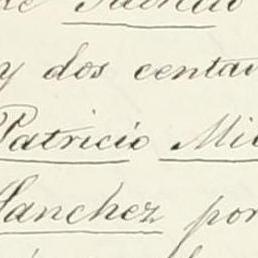 y dos centav
Patricio Mil
Sanchez por